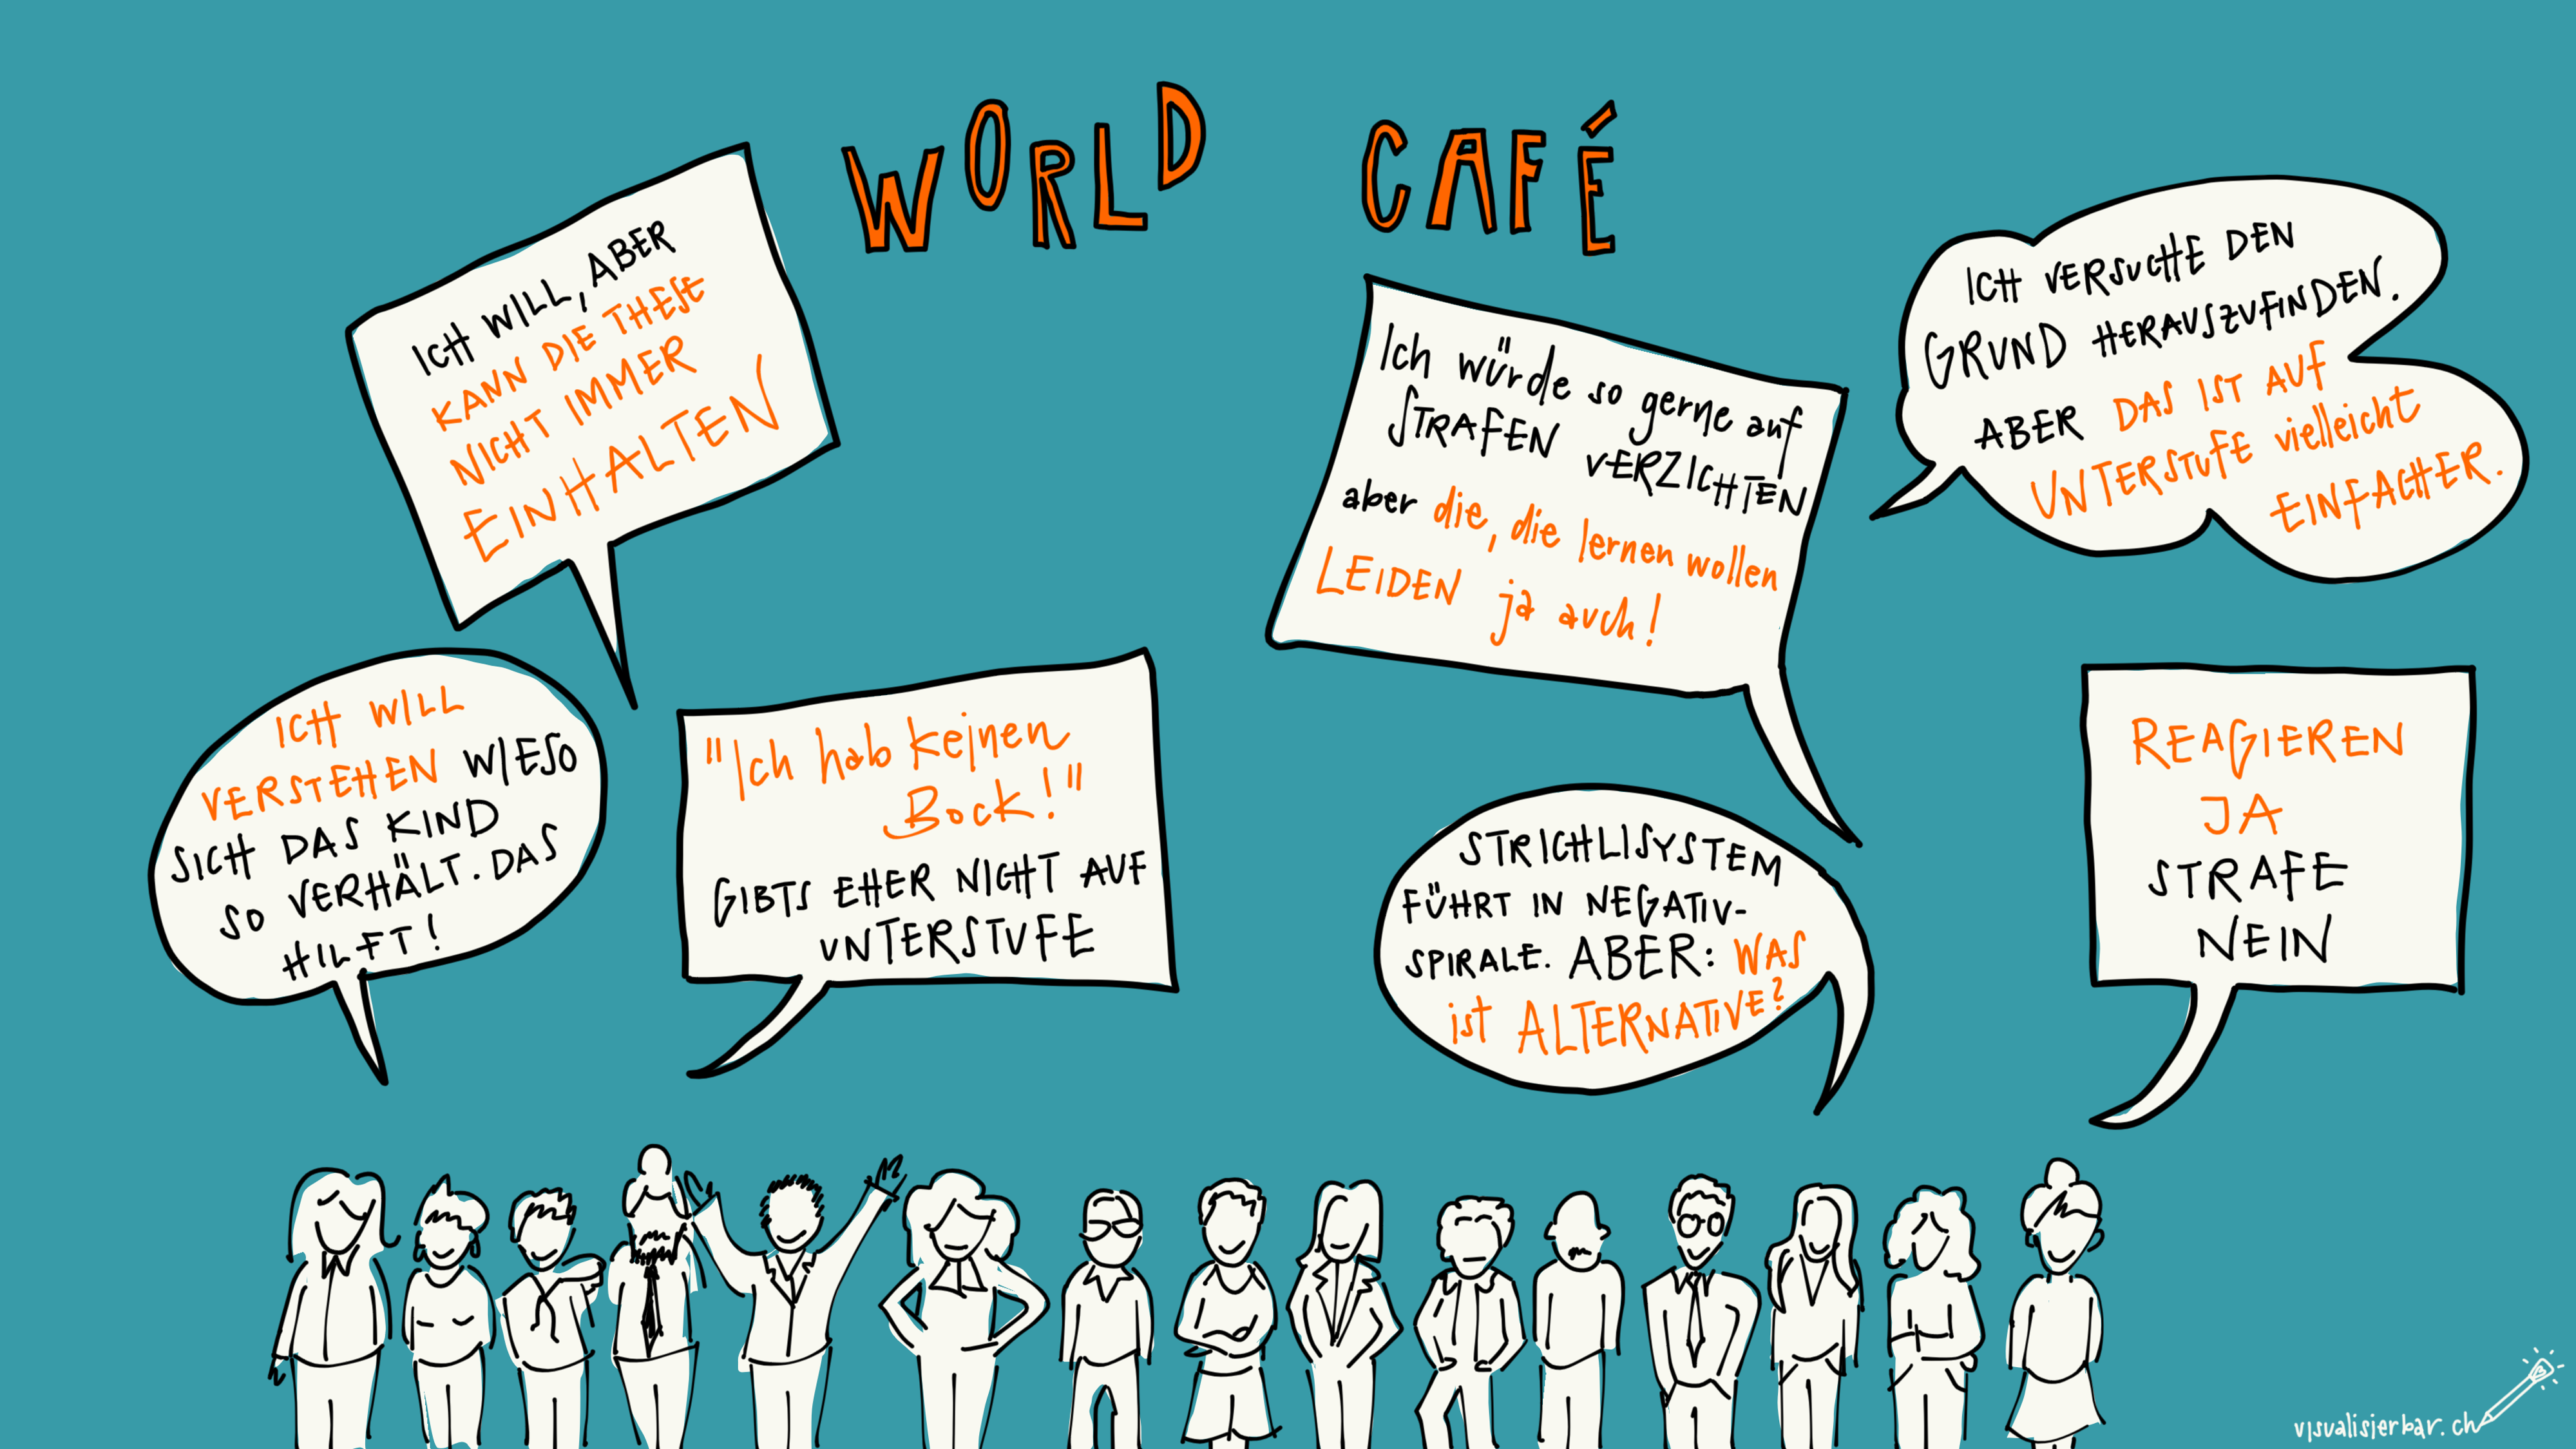 WORLD CAFÉ
ICH WILL, ABER
KANN DIE THESE
NICHT IMMER
EINHALTEN
Ich würde so gerne auf
STRAFEN VERZICHTEN
aber die, die lernen wollen
LEIDEN ja auch!
ICH VERSUCHE DEN
GRUND HERAUSZUFINDEN.
ABER DAS IST AUF
UNTERSTUFE vielleicht
EINFACHER.
ICH WILL
VERSTEHEN WIESO
SICH DAS KIND
SO VERHÄLT. DAS
HILFT!
"Ich hab keinen
Bock!"
GIBTS EHER NICHT AUF
UNTERSTUFE
STRICHLISYSTEM
FÜHRT IN NEGATIV-
SPIRALE. ABER: WAS
ist ALTERNATIVE?
REAGIEREN
JA
STRAFE
NEIN
visualisierbar.ch